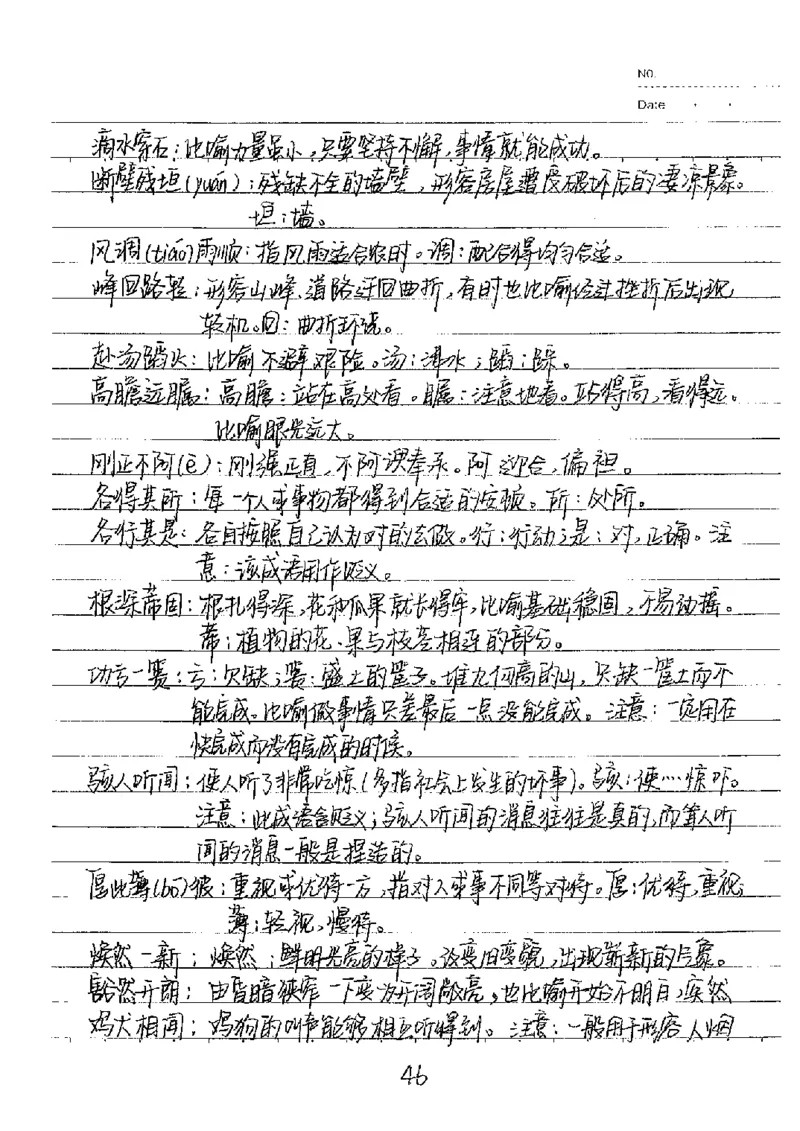 NO.
Date
滴水穿石：比喻力量虽小，只要坚持不懈，事情就能成功。
断壁残垣(yuán)：残缺不全的墙壁，形容房屋遭受破坏后的凄凉景象。
垣：墙。
风调(tiáo)雨顺：指风雨适合农时。调：配合得均匀合适。
峰回路转：形容山峰、道路迂回曲折，有时也比喻经过挫折后出现
转机。回：曲折环绕。
赴汤蹈火：比喻不避艰险。汤：沸水；蹈：踩。
高瞻远瞩：高瞻：站在高处看。瞩：注意地看。站得高，看得远。
比喻眼光远大。
刚正不阿(ē)：刚强正直，不阿谀奉承。阿 迎合，偏袒。
各得其所：每一个人或事物都得到合适的安顿。所：处所。
各行其是：各自按照自己认为对的去做。行：行动；是：对，正确。注
意：该成语用作贬义。
根深蒂固：根扎得深，花和瓜果就长得牢，比喻基础稳固，不易动摇。
蒂：植物的花、果与枝茎相连的部分。
功亏一篑：亏：欠缺；篑：盛土的筐子。堆九仞高的山，只缺一筐土而不
能完成。比喻做事情只差最后一点没能完成。注意：一定用在
快完成而没有完成的时候。
骇人听闻：使人听了非常吃惊(多指社会上发生的坏事)。骇：使…惊吓。
注意：此成语含贬义；骇人听闻的消息往往是真的，而耸人听
闻的消息一般是捏造的。
厚此薄(bó)彼：重视或优待一方，指对人或事不同等对待。厚：优待，重视；
薄：轻视，慢待。
焕然一新：焕然：鲜明光亮的样子。改变旧变貌，出现崭新的气象。
豁然开朗：由昏暗狭窄一下变为开阔敞亮，也比喻开始不明白，突然
鸡犬相闻：鸡狗的叫声能够相互听得到。注意：一般用于形容人烟
46